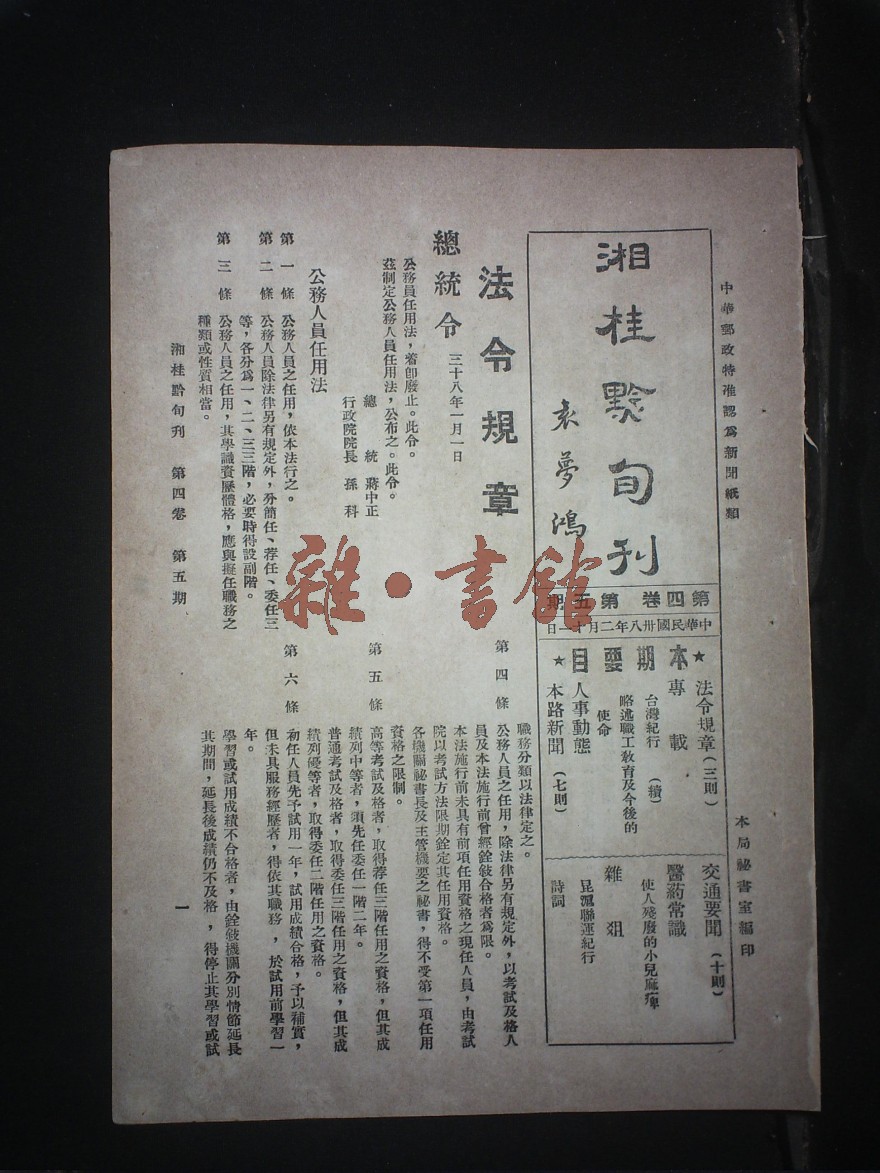 中華郵政特准認為新聞紙類
本局祕書室編印
湘桂黔旬刊
袁夢鴻
第四卷 第五期
中華民國卅八年二月十一日
★本期要目★
法令規章（三則）
專載
台灣紀行（續）
略述職工教育及今後的
使命
人事動態
本路新聞（七則）
交通要聞（十則）
醫药常識
使人殘廢的小兒麻痺
雜俎
昆滬聯運紀行
詩詞
法令規章
總統令 三十八年一月一日
公務員任用法，着卽廢止。此令。
茲制定公務人員任用法，公布之。此令。
總統 蔣中正
行政院院長 孫科
公務人員任用法
第一條 公務人員之任用，依本法行之。
第二條 公務人員除法律另有規定外，分簡任、荐任、委任三
等，各分為一、二、三三階，必要時得設副階。
第三條 公務人員之任用，其學識資歷體格，應與擬任職務之
種類或性質相當。
職務分類以法律定之。
第四條 公務人員之任用，除法律另有規定外，以考試及格人
員及本法施行前曾經銓敍合格者為限。
本法施行前未具有前項任用資格之現任人員，由考試
院以考試方法限期銓定其任用資格。
各機關祕書長及主管機要之祕書，得不受第一項任用
資格之限制。
第五條 高等考試及格者，取得荐任三階任用之資格，但其成
績列中等者，須先任委任一階二年。
普通考試及格者，取得委任三階任用之資格，但其成
績列優等者，取得委任二階任用之資格。
第六條 初任人員先予試用一年，試用成績合格，予以補實，
但未具服務經歷者，得依其職務，於試用前學習一
年。
學習或試用成績不合格者，由銓敍機關分別情節延長
其期間，延長後成績仍不及格，得停止其學習或試
湘桂黔旬刊 第四卷 第五期
一
雜·書館